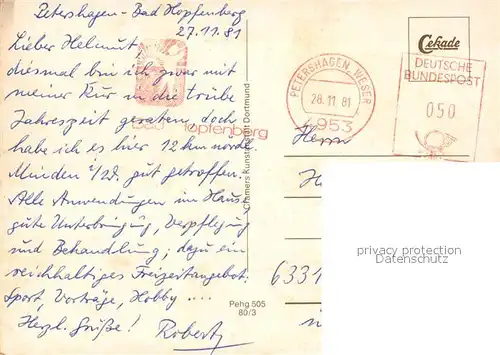 Petershagen - Bad Hopfenberg
27.11.81
Lieber Helmut,
diesmal bin ich zwar mit
meiner Kur in die trübe
Jahreszeit geraten, doch
habe ich es hier 12 km nördl.
Minden i/W. gut getroffen.
Alle Anwendungen im Haus,
gute Unterbringung, Verpflegung
und Behandlung; dazu ein
reichhaltiges Freizeitangebot:
Sport, Vorträge, Hobby ....
Herzl. Grüße! Robert
Bad Hopfenberg
Cramers Kunstanstalt Dortmund
Pehg 505
80/3
Cekade
PETERSHAGEN, WESER
28.11.81
4953
DEUTSCHE
BUNDESPOST
050
Herrn
H
6334
privacy protection
Datenschutz